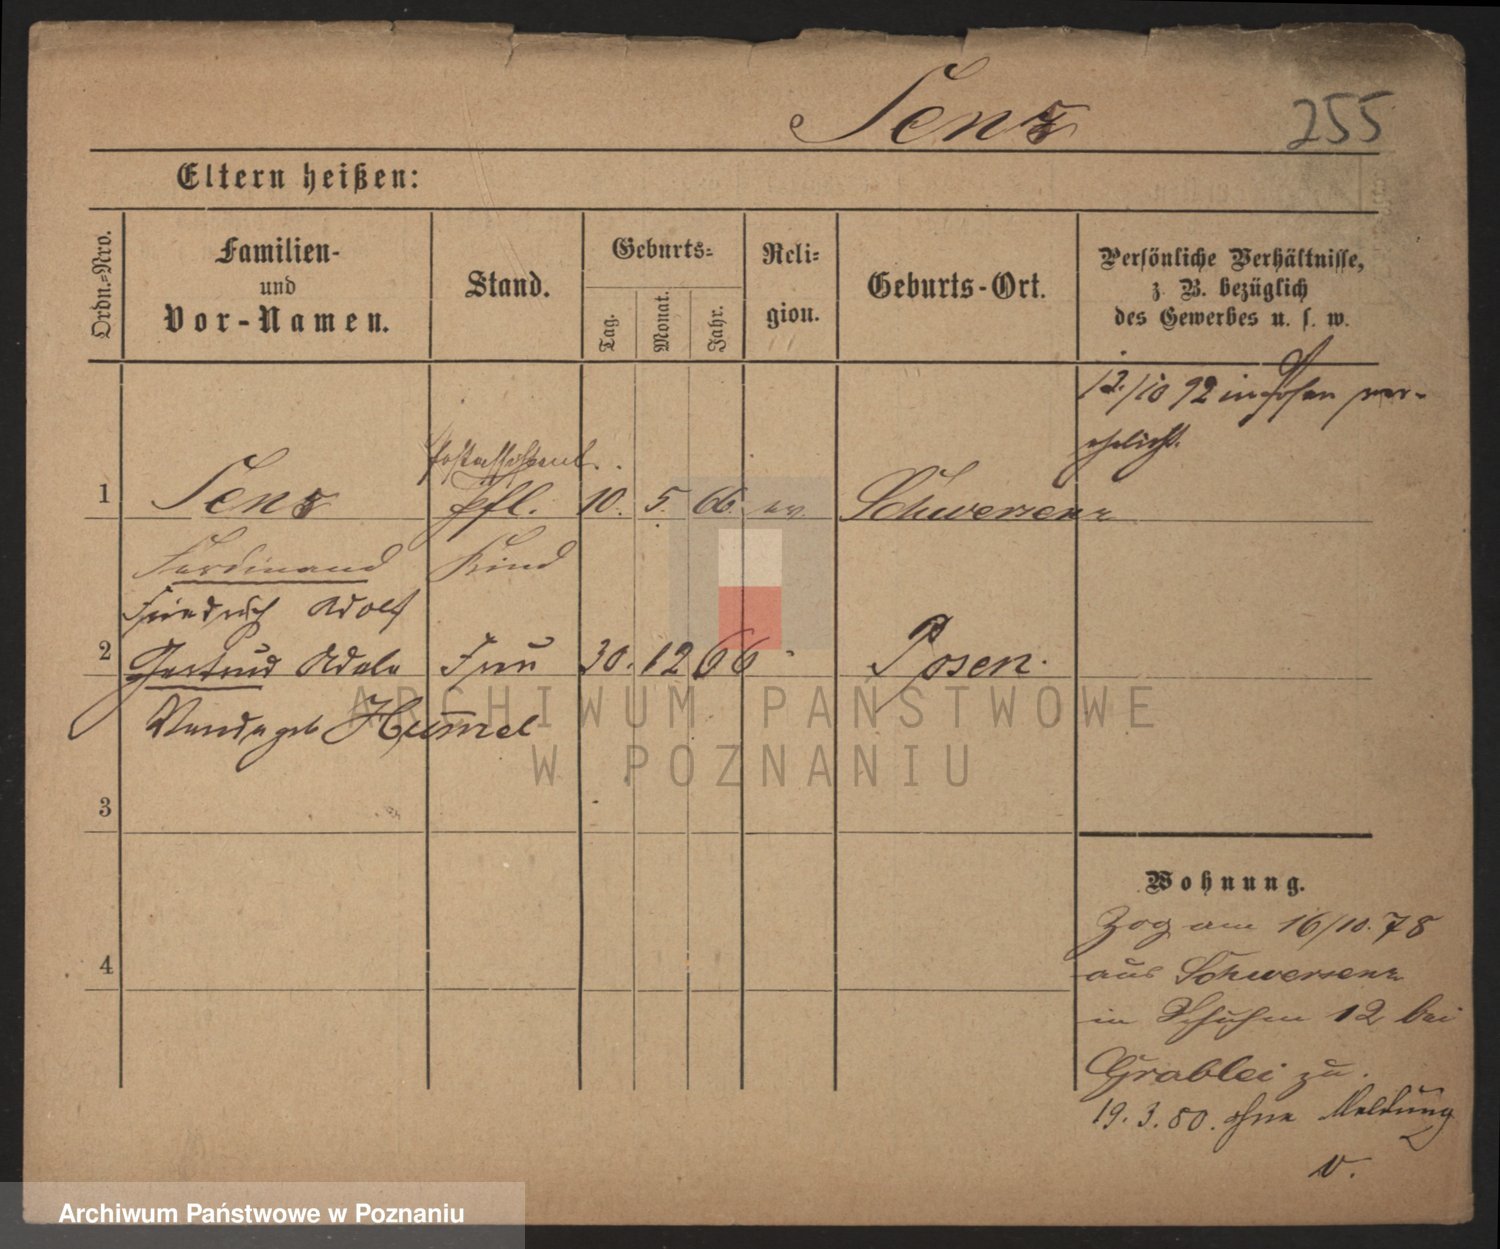 Senz
255
Eltern heißen:
Ordn.-Nro.
Familien-
und
Vor-Namen.
Stand.
Geburts-
Tag.
Monat.
Jahr.
Reli-
gion.
Geburts-Ort.
Persönliche Verhältnisse,
z. B. bezüglich
des Gewerbes u. s. w.
13./10 92 in Posen ver-
ehelicht.
Postassistent.
1 Senz pfl. 10. 5. 66. ev. Schwersenz
Ferdinand Kind
Friedrich Adolf
2 Gertrud Adele Frau 30. 12 66 Posen.
Wanda geb Hum̄el
3
4
Wohnung.
Zog am 16/10. 78
aus Schwersenz
in 12 bei
Grablei zu.
19. 3. 80. ohne Meldung
v.
ARCHIWUM PAŃSTWOWE
W POZNANIU
Archiwum Państwowe w Poznaniu